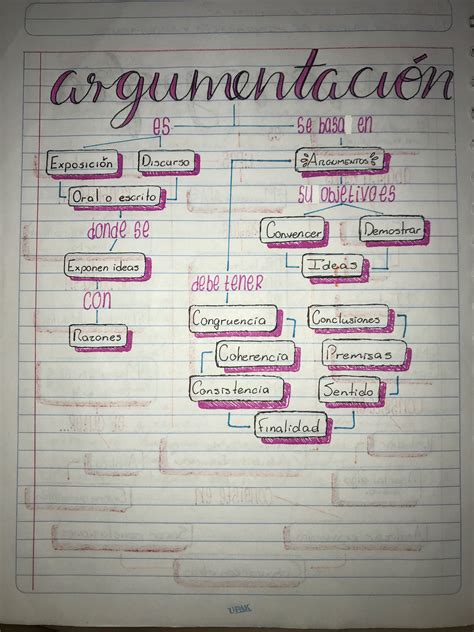 argumentación
es
se basa en
Exposición
Discurso
Argumentos
Oral o escrito
su objetivo es
donde se
Convencer
Demostrar
Exponen ideas
Ideas
debe tener
con
Congruencia
Conclusiones
Razones
Coherencia
Premisas
Consistencia
Sentido
Finalidad